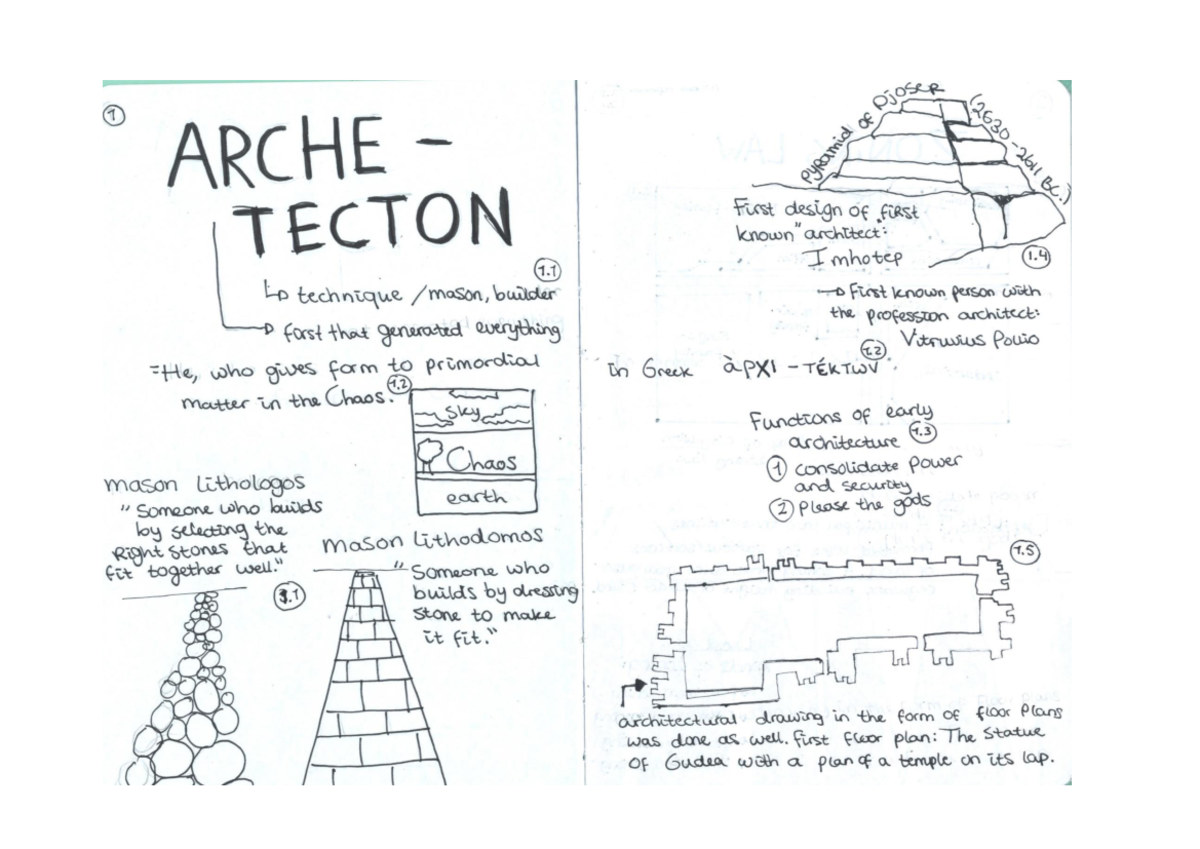 1
ARCHE -
TECTON
1.1
technique / mason, builder
first that generated everything
=He, who gives form to primordial
matter in the Chaos. 1.2
Sky
Chaos
earth
mason lithologos
"Someone who builds
by selecting the
Right stones that
fit together well."
1.1
mason lithodomos
"Someone who
builds by dressing
stone to make
it fit."
Pyramid of Djoser (2630-2611 BC.)
First design of "first
known" architect:
Imhotep
1.4
First known person with
the profession architect:
Vitruvius Polio
1.2
in Greek ἀρχι - τέκτων
Functions of early
architecture 1.3
1 consolidate power
and security
2 please the gods
1.5
architectural drawing in the form of floor plans
was done as well. first floor plan: The Statue
of Gudea with a plan of a temple on its lap.